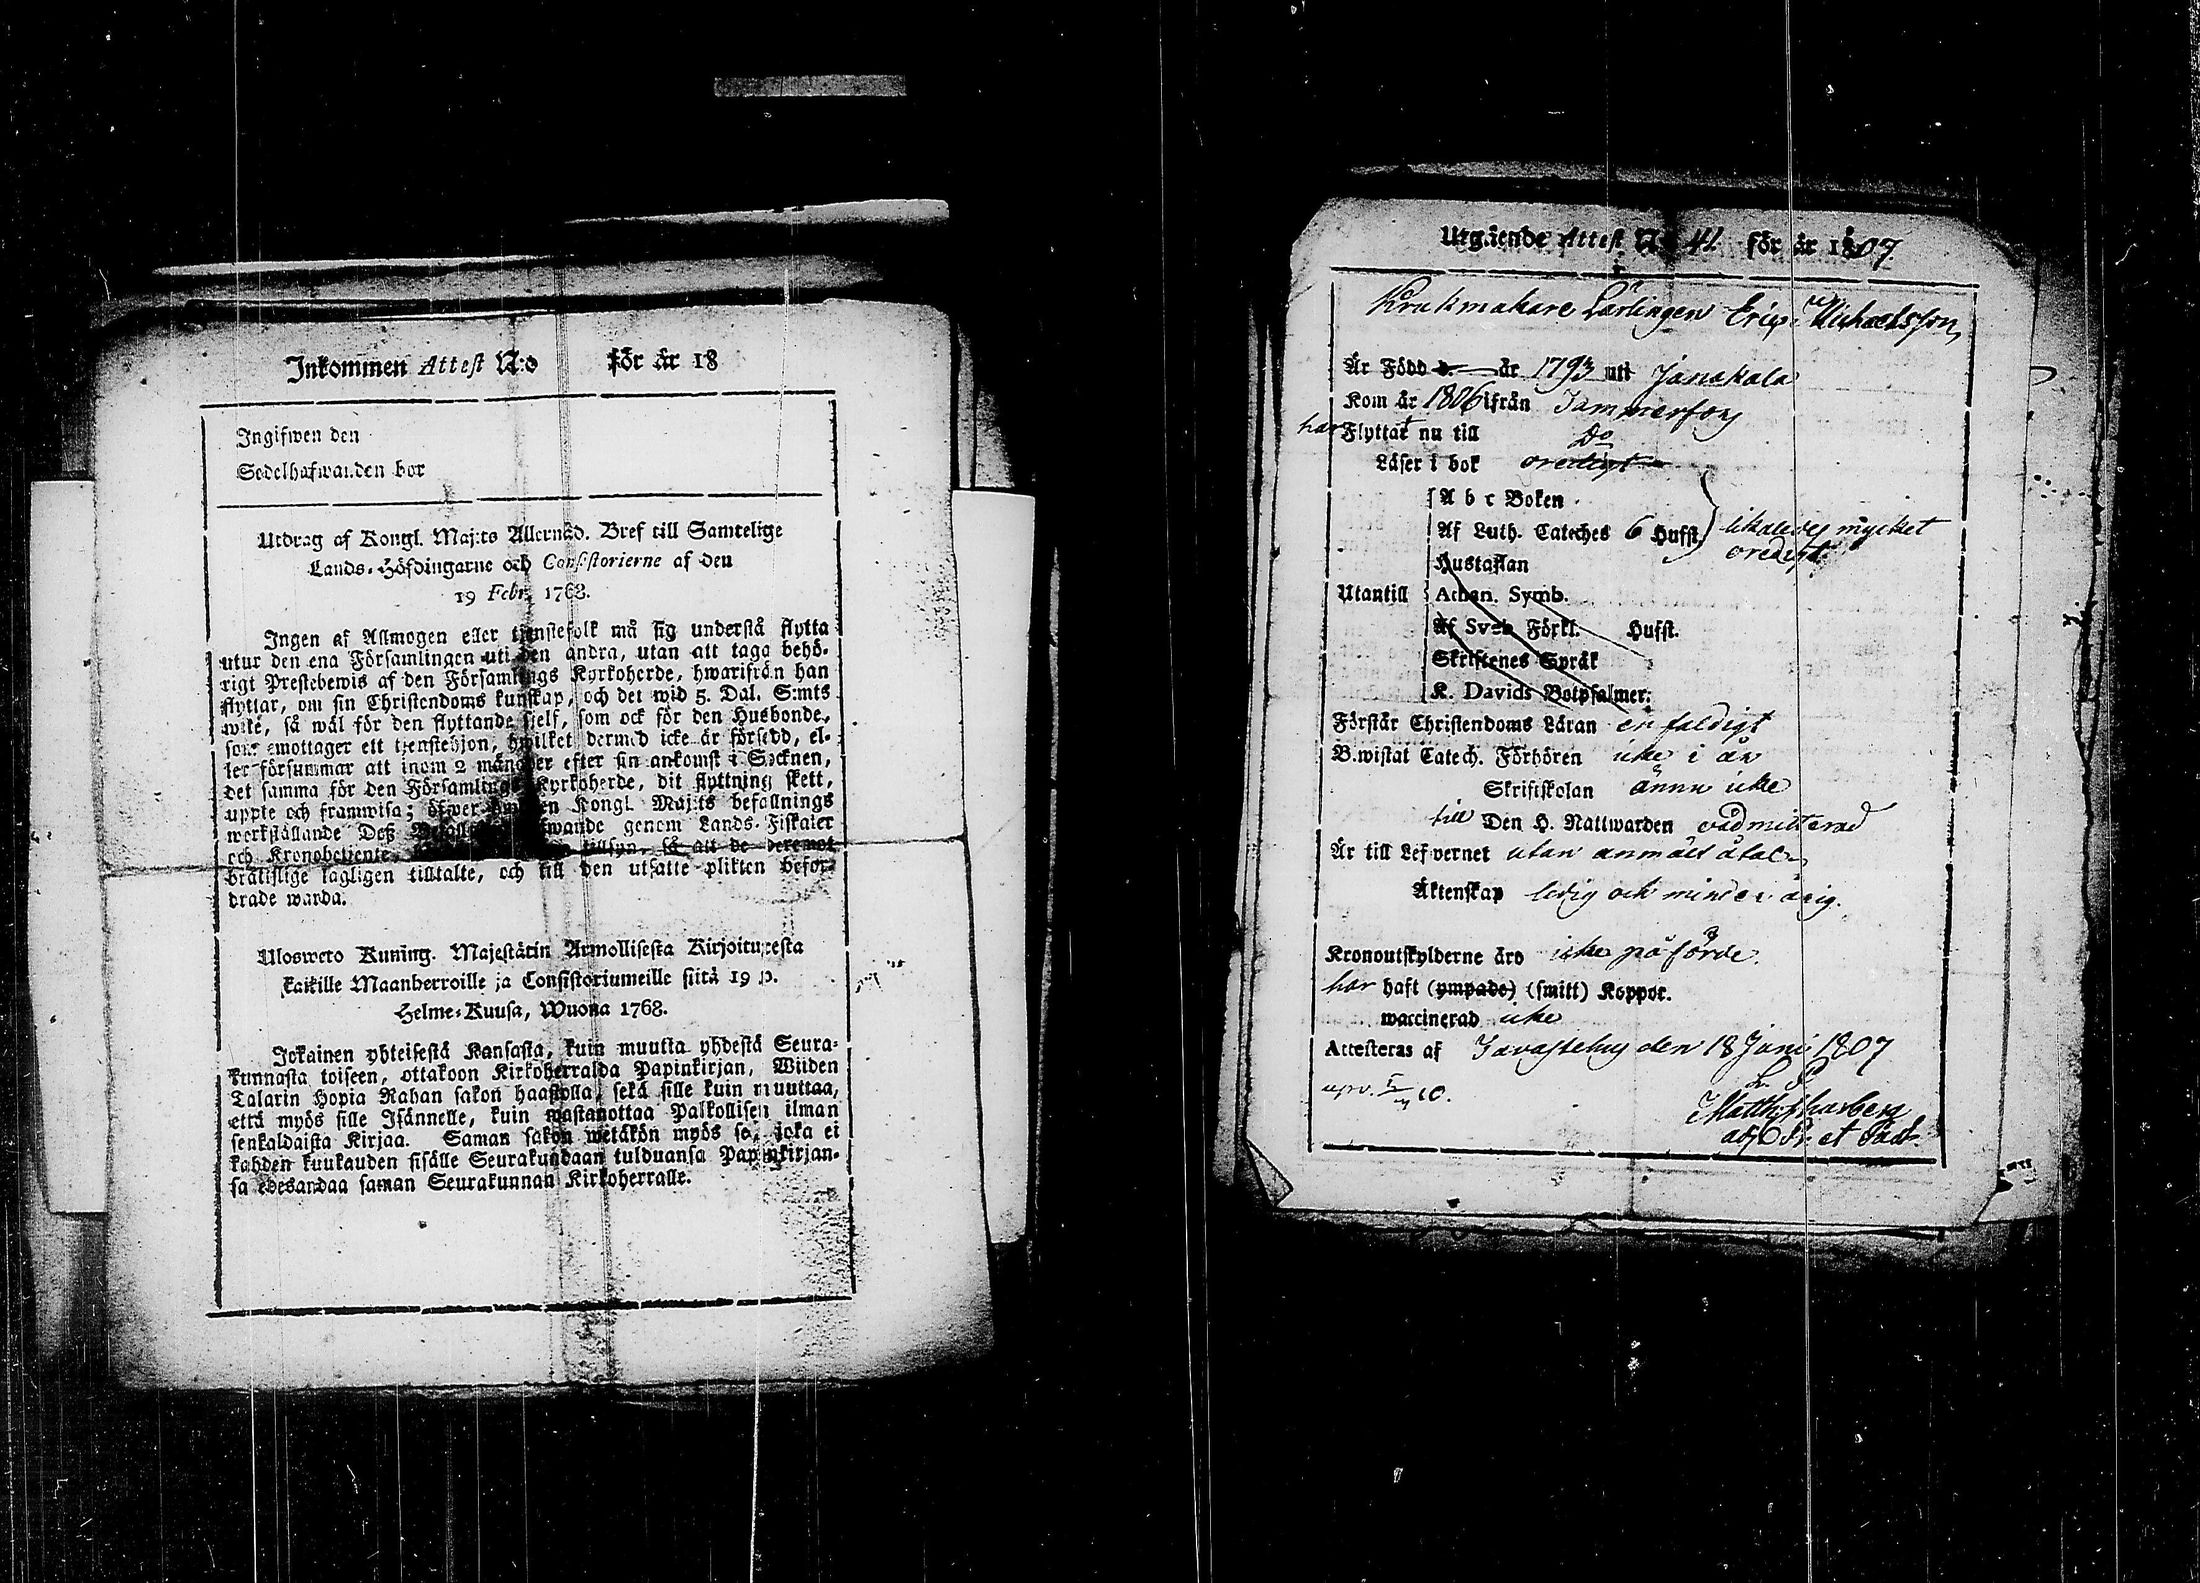 Inkommen Attest N:o för år 18
Ingifwen den
Sedelhafwanden bor
Utdrag af Kongl. Maj:ts Allernåd. Bref till Samtelige
Lands-Höfdingarne och Consistorierne af den
19 Febr. 1768.
Ingen af Allmogen eller tjenstefolk må sig understå flytta
utur den ena Församlingen uti den andra, utan att taga behö-
rigt Prestebewis af den Församlings Kyrkoherde, hwarifrån han
flyttar, om sin Christendoms kunskap, och det wid 5. Dal. S:mts
wite, så wäl för den flyttande sjelf, som ock för den Husbonde,
som emottager ett tjenstehjon, hwilket dermed icke är försedd, el-
ler försummar att inom 2 månader efter sin ankomst i Socknen,
det samma för den Församlings Kyrkoherde, dit flyttning skett,
uppte och framwisa; öfwer hwilken Kongl. Maj:ts befallnings
werkställande Deß genom Lands-Fiskaler
och Kronobetjente tillsyn, så att de deremot
brätslige lagligen tilltalte, och till den utsatte plikten befor-
drade warda.
Ulosweto Kuning. Majestätin Armollisesta Kirjoituxesta
kaikille Maanherroille ja Consistoriumeille siitä 19 p.
Helme-Kuusa, Wuona 1768.
Jokainen yhteisestä Kansasta, kuin muutta yhdestä Seura-
kunnasta toiseen, ottakoon Kirkoherralda Papinkirjan, Wiiden
Talarin Hopia Rahan sakon haastolla, sekä sille kuin muuttaa,
että myös sille Isännelle, kuin wastanottaa Palkollisen ilman
senkaldaista Kirjaa. Saman sakon wetäkön myös se, joka ei
kahden kuukauden sisälle Seurakundaan tulduansa Papinkirjan-
sa edesandaa saman Seurakunnan Kirkoherralle.
Utgående Attest N:o 41 för år 1807.
Krukmakare Lärlingen Eric Michaelsson
Är Född d. år 1793 uti Janakala
Kom år 1806 ifrån Tammerfors
har Flyttat nu till Do
Läser i bok oredigt
A b c Boken
Af Luth. Cateches 6 Hufst. likaledes mycket
oredigt
Hustaflan
Utantill Athan. Symb.
Af Sveb. Förkl. Hufst.
Skriftenes Språk
K. Davids Botpsalmer.
Förstår Christendoms Läran enfaldigt
Bewistat Catech. Förhören icke i år
Skriftskolan ännu icke
till Den H. Nattwarden oadmitterad
Är till Lefwernet utan anmält åtal
Äktenskap ledig och minderårig.
Kronoutskylderne äro icke påförde.
har haft (ympade) (smitt) Koppor.
waccinerad icke
Attesteras af Tavastehus den 18 Juni 1807